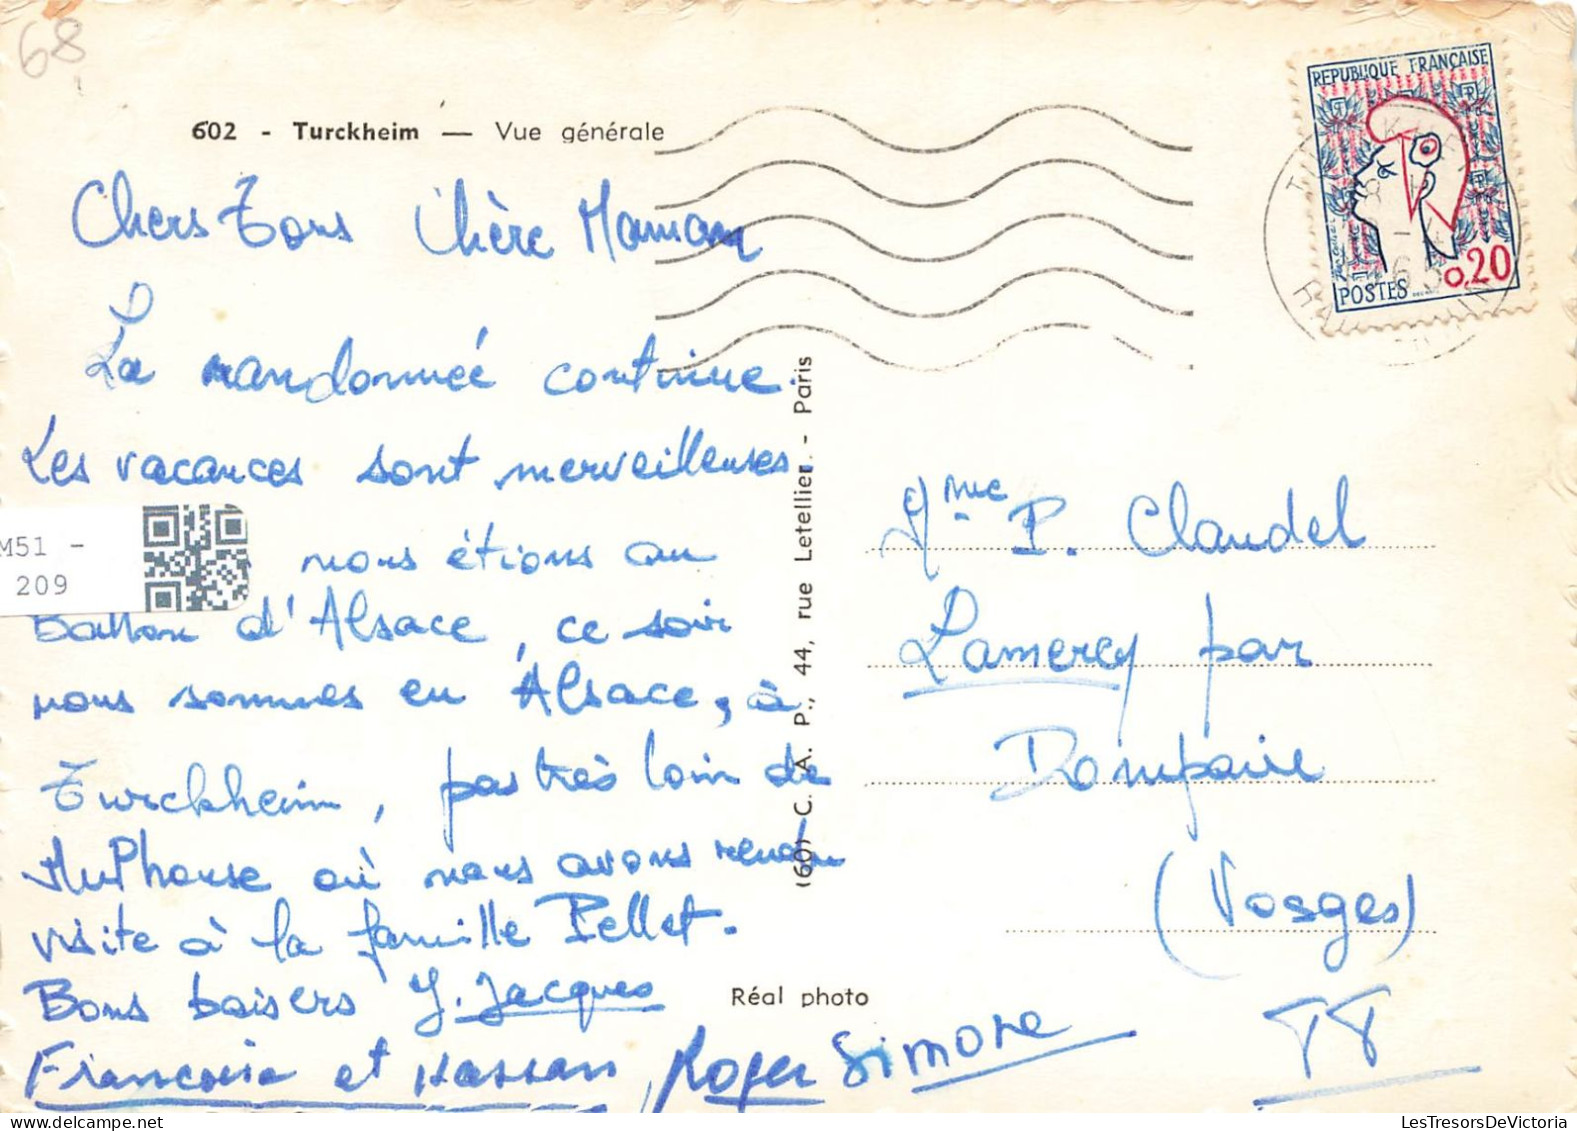 68
602 - Turckheim — Vue générale
REPUBLIQUE FRANÇAISE
POSTES 0,20
Chers Tous Chère Maman
La randonnée continue.
Les vacances sont merveilleuses.
nous étions au
Ballon d'Alsace, ce soir
nous sommes en Alsace, à
Turckheim, pas très loin de
Mulhouse où nous avons rendu
visite à la famille Pellet.
Bons baisers J. Jacques
Francoise et Hassan, Roger Simone
M51 -
209
(60) C. A. P., 44, rue Letellier - Paris
Réal photo
Mme P. Claudel
Lamerey par
Dompaire
(Vosges)
TT
LesTresorsDeVictoria.com